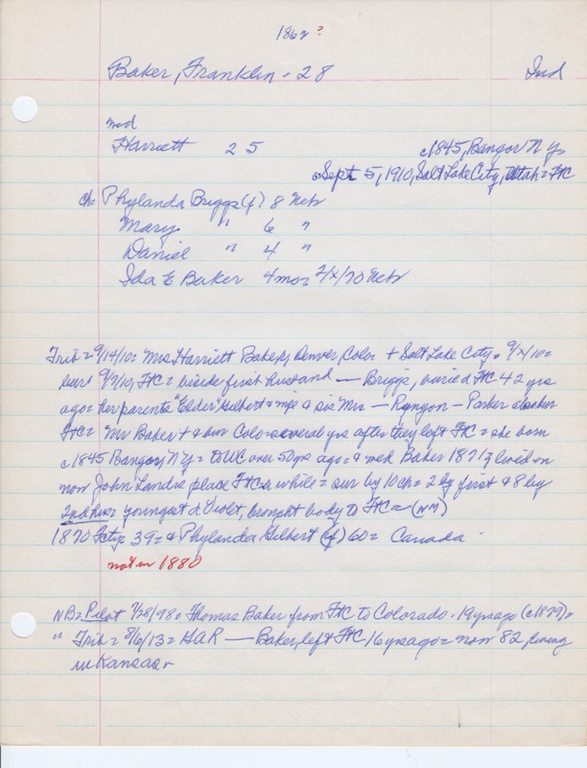 1862 ?
Baker, Franklin - 28 Ind
md
Harriett 25 c1845, Bangor N Y=
Sept 5, 1910, Salt Lake City, Utah = FtC
ch= Phylanda Briggs (f) 8 Neb
Mary " 6 "
Daniel " 4 "
Ida E Baker 4mo= 2/x/70 Neb
Trib = 9/14/10= Mrs Harriett Baker, Denver, Color + Salt Lake City = 9/x/10=
buri 9/9/10, FtC = beside first husband — Briggs, buried FtC 42 yrs
ago = her parents "Elder" Gilbert & wife & sis Mrs — Runyon - Parker also bur
FtC= Mr Baker + & bur Colo = several yrs after they left FtC = she born
c1845 Bangor, N Y = to WC over 50 yrs ago = & med Baker 1871? lived on
now John Landis place, FtC a while = sur by 10 ch = 2 by first & 8 by
2nd hus = youngest d Violet, brought body to FtC = (NM)
1870 39 = & Phylander Gilbert (f) 60 = Canada
not in 1880
NB= Pilot 7/28/98 = Thomas Baker from FtC to Colorado - 19 yrs ago (c1879) =
" Trib = 8/6/13 = GAR — Baker, left FtC 16 yrs ago = now 82, living
in Kansas -